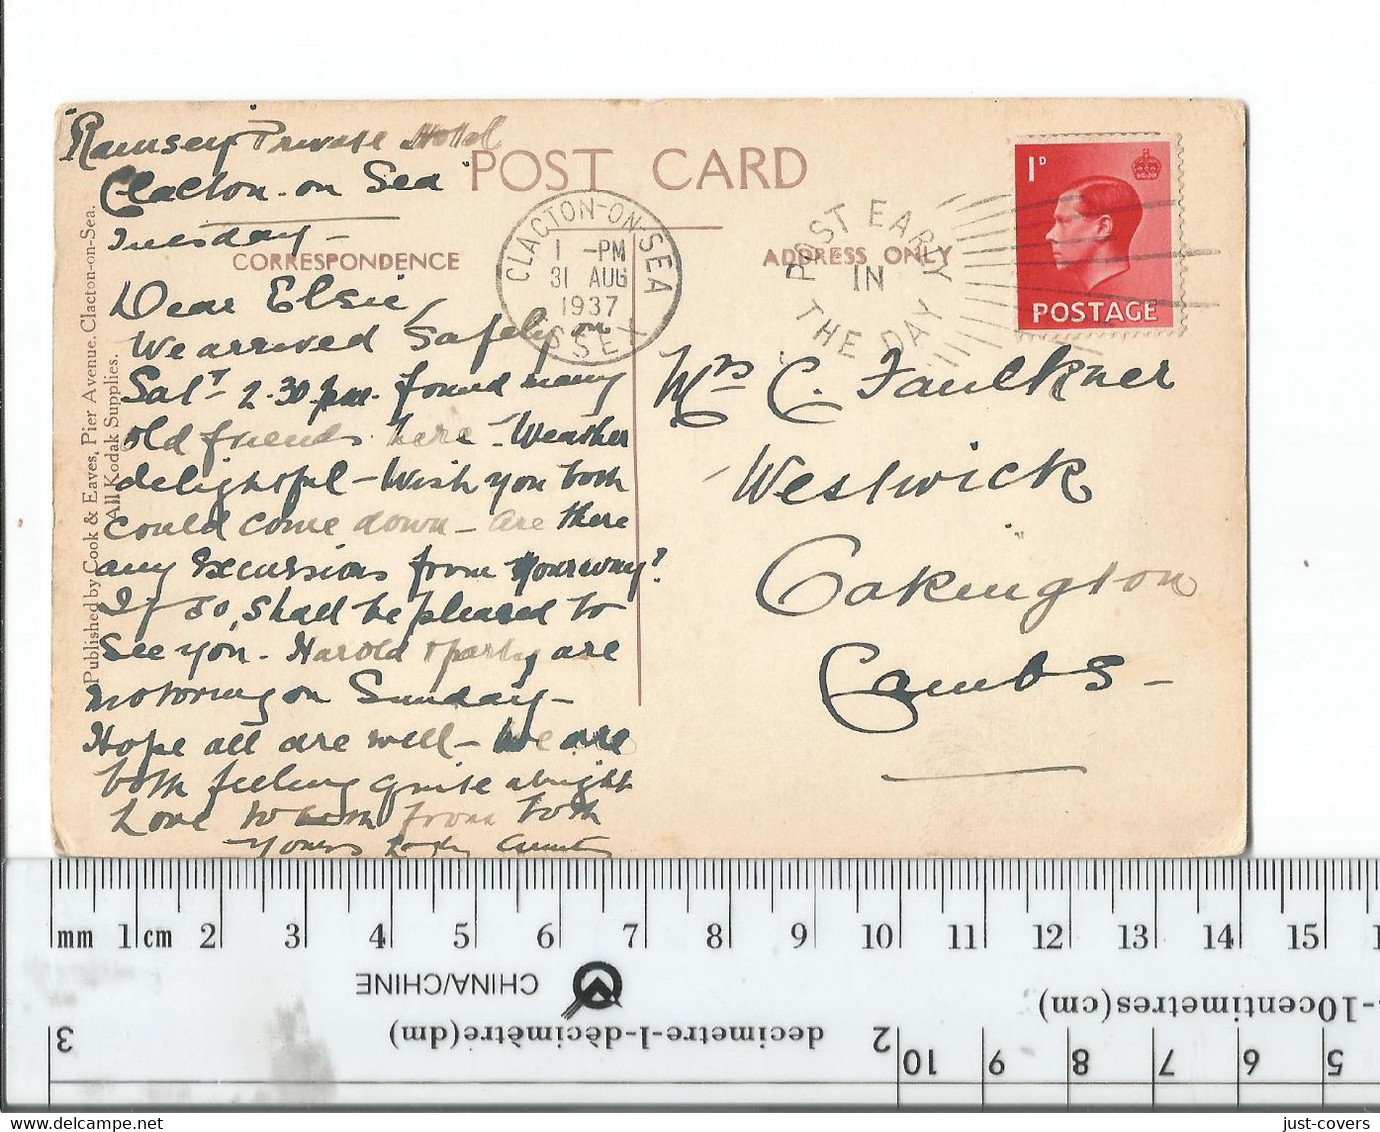 "Ramsey" Private Hotel
Clacton-on Sea
Tuesday -
POST CARD
CORRESPONDENCE
ADDRESS ONLY
CLACTON-ON-SEA
1 -PM
31 AUG
1937
ESSEX
POST EARLY
IN
THE DAY
1D
POSTAGE
Dear Elsie,
We arrived safely on
Satr 2.30.pm. found many
old friends here - Weather
delightful - Wish you both
could come down - are there
any Excursions from your way?
If so, shall be pleased to
see you - Harold & party are
motoring on Sunday -
Hope all are well - We are
both feeling quite alright
Love to from both
Yours Auntie
Mrs C. Faulkner
Westwick
Oakington
Cambs -
Published by Cook & Eaves, Pier Avenue. Clacton-on-Sea.
All Kodak Supplies.
mm 1 cm 2 3 4 5 6 7 8 9 10 11 12 13 14 15 1
CHINA/CHINE
s-10centimetres(cm)
decimetre-1-dècimètre(dm)
3
2
10 9 8 7 6 5
www.delcampe.net
just-covers